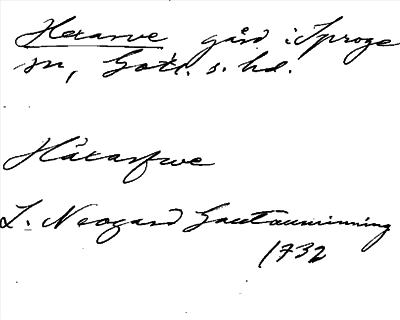 Hetarve gård i Sproge
sn, Gotl. s. hd.
Håtarfwe
L. Neogard Gautauminning
1732